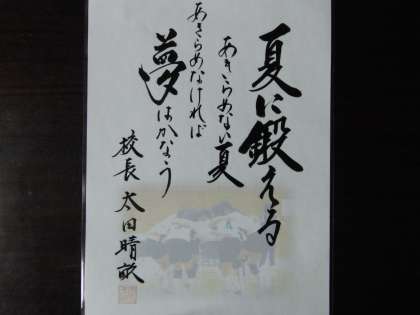 夏に鍛える
あきらめない夏
あきらめなければ
夢はかなう
校長 太田晴